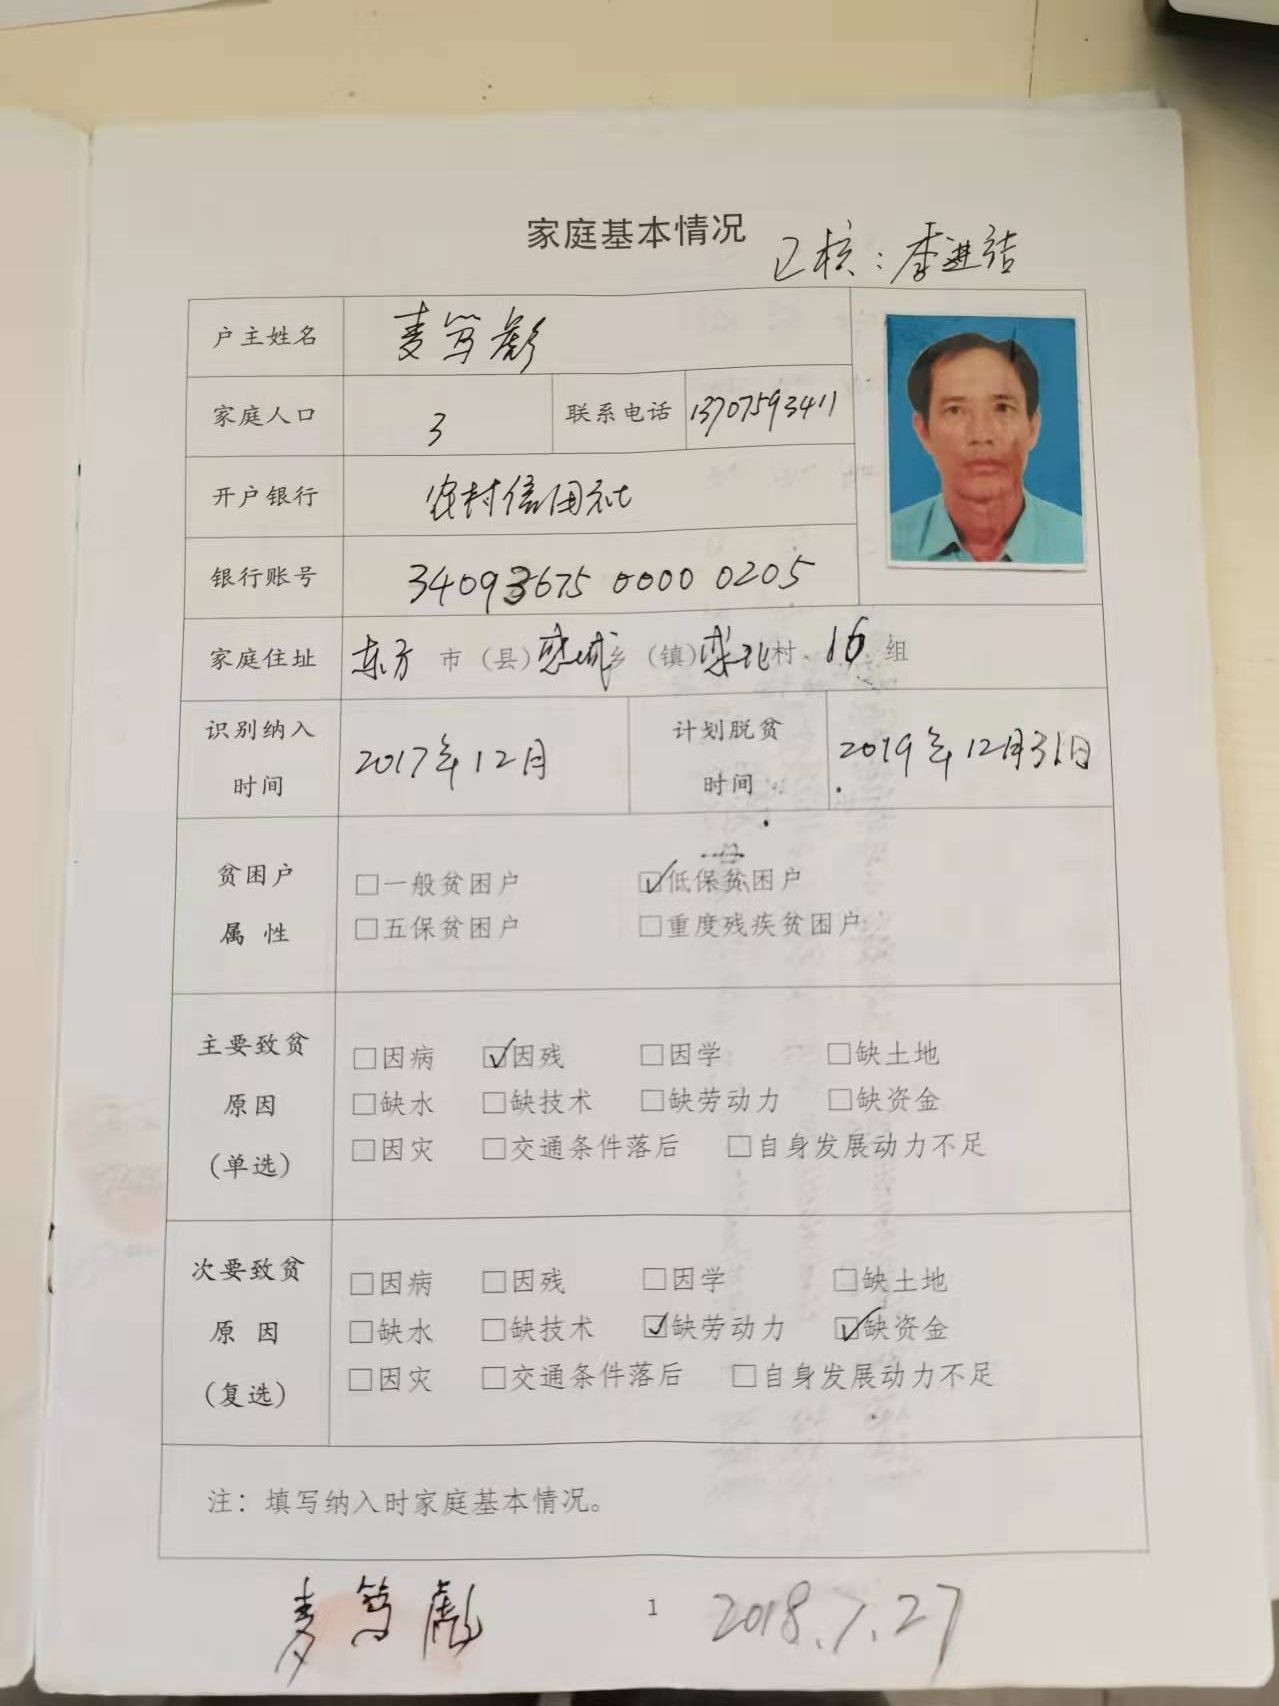 家庭基本情况
已核：李进结
户主姓名 麦笃彪
家庭人口 3 联系电话 13707593411
开户银行 农村信用社
银行账号 34093675 0000 0205
家庭住址 东方 市（县）感城乡（镇）感北村 16 组
识别纳入时间 2017年12月 计划脱贫时间 2019年12月31日
贫困户属性
□一般贫困户 ☑低保贫困户
□五保贫困户 □重度残疾贫困户
主要致贫原因（单选）
□因病 ☑因残 □因学 □缺土地
□缺水 □缺技术 □缺劳动力 □缺资金
□因灾 □交通条件落后 □自身发展动力不足
次要致贫原因（复选）
□因病 □因残 □因学 □缺土地
□缺水 □缺技术 ☑缺劳动力 ☑缺资金
□因灾 □交通条件落后 □自身发展动力不足
注：填写纳入时家庭基本情况。
麦笃彪 1 2018.1.27